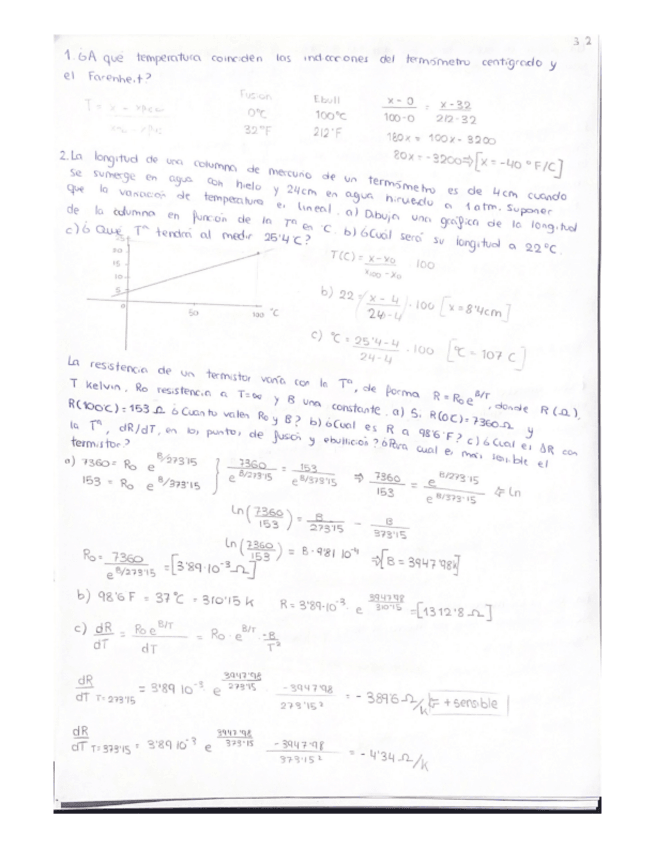 3.2
1. ¿A qué temperatura coinciden las indicaciones del termómetro centígrado y
el Farenheit?
Fusión Ebull
0°C 100°C
32°F 212°F
x-0 / 100-0 = x-32 / 212-32
180x = 100x - 3200
80x = -3200 ⇒ [x = -40 °F/C]
2. La longitud de una columna de mercurio de un termómetro es de 4cm cuando
se sumerge en agua con hielo y 24cm en agua hirviendo a 1 atm. Suponer
que la variación de temperatura es lineal. a) Dibuja una gráfica de la longitud
de la columna en función de la Tª en C. b) ¿Cuál será su longitud a 22°C.
c) ¿Que Tª tendrá al medir 25'4C?
25
20
15
10
5
50 100 °C
T(C) = x-x0 / x100-x0 100
b) 22 = (x-4 / 24-4) · 100 [x = 8'4cm]
c) °C = 25'4-4 / 24-4 · 100 [°C = 107 C]
La resistencia de un termistor varía con la Tª, de forma R = R0 e^B/T, donde R (Ω),
T kelvin, R0 resistencia a T=∞ y B una constante. a) Si R(0C) = 7360 Ω y
R(100C) = 153 Ω ¿Cuanto valen R0 y B? b) ¿Cual es R a 98'6 F? c) ¿Cual es ΔR con
la Tª, dR/dT, en los puntos de fusión y ebullición? ¿Para cual es más sensible el
termistor?
a) 7360 = R0 e^B/273'15
153 = R0 e^B/373'15
} 7360 / e^B/273'15 = 153 / e^B/373'15 ⇒ 7360 / 153 = e^B/273'15 / e^B/373'15 ⇐ Ln
Ln(7360 / 153) = B / 273'15 - B / 373'15
Ln(7360 / 153) = B · 9'81 10^-4 ⇒ [B = 3947'98k]
R0 = 7360 / e^B/273'15 = [3'89·10^-3 Ω]
b) 98'6 F = 37°C = 310'15 k R = 3'89·10^-3 · e^3947'98/310'15 = [1312'8 Ω]
c) dR / dT = R0 e^B/T / dT = R0 · e^B/T · -B / T²
dR / dT T=273'15 = 3'89 10^-3 · e^3947'98/273'15 · -3947'98 / 273'15² = -389'6 Ω/k ⇐ + sensible
dR / dT T=373'15 = 3'89 10^-3 e^3947'98/373'15 -3947'98 / 373'15² = -4'34 Ω/k